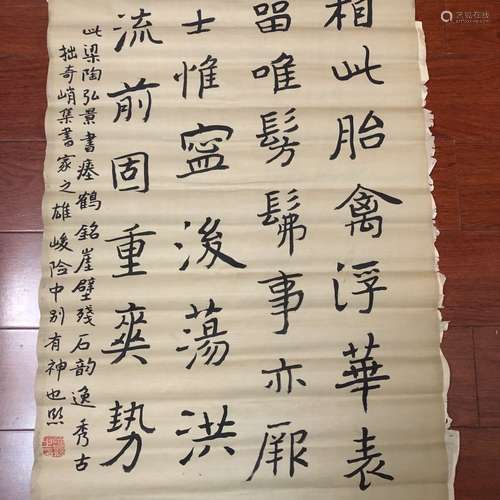 相此胎禽浮華表
留唯髣髴事亦厥
士惟寍後蕩洪
流前固重爽勢
此梁陶弘景書瘞鶴銘崖壁殘石韵逸秀古
拙奇峭集書家之雄峻险中别有神也